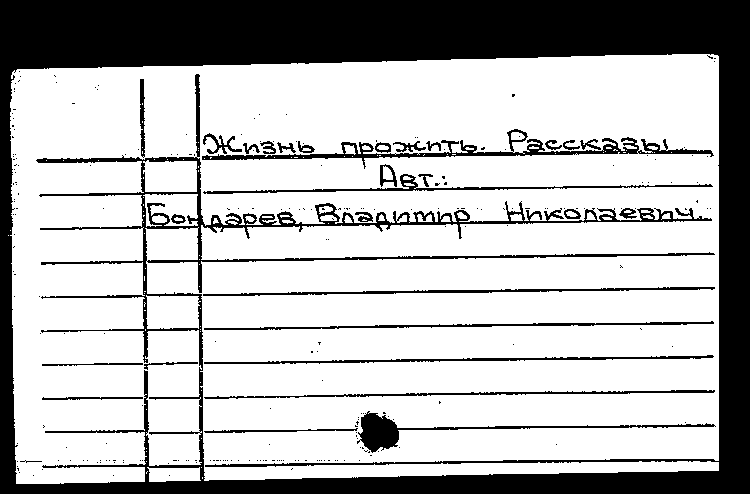 Жизнь прожить. Рассказы
Авт.:
Бондарев, Владимир Николаевич.